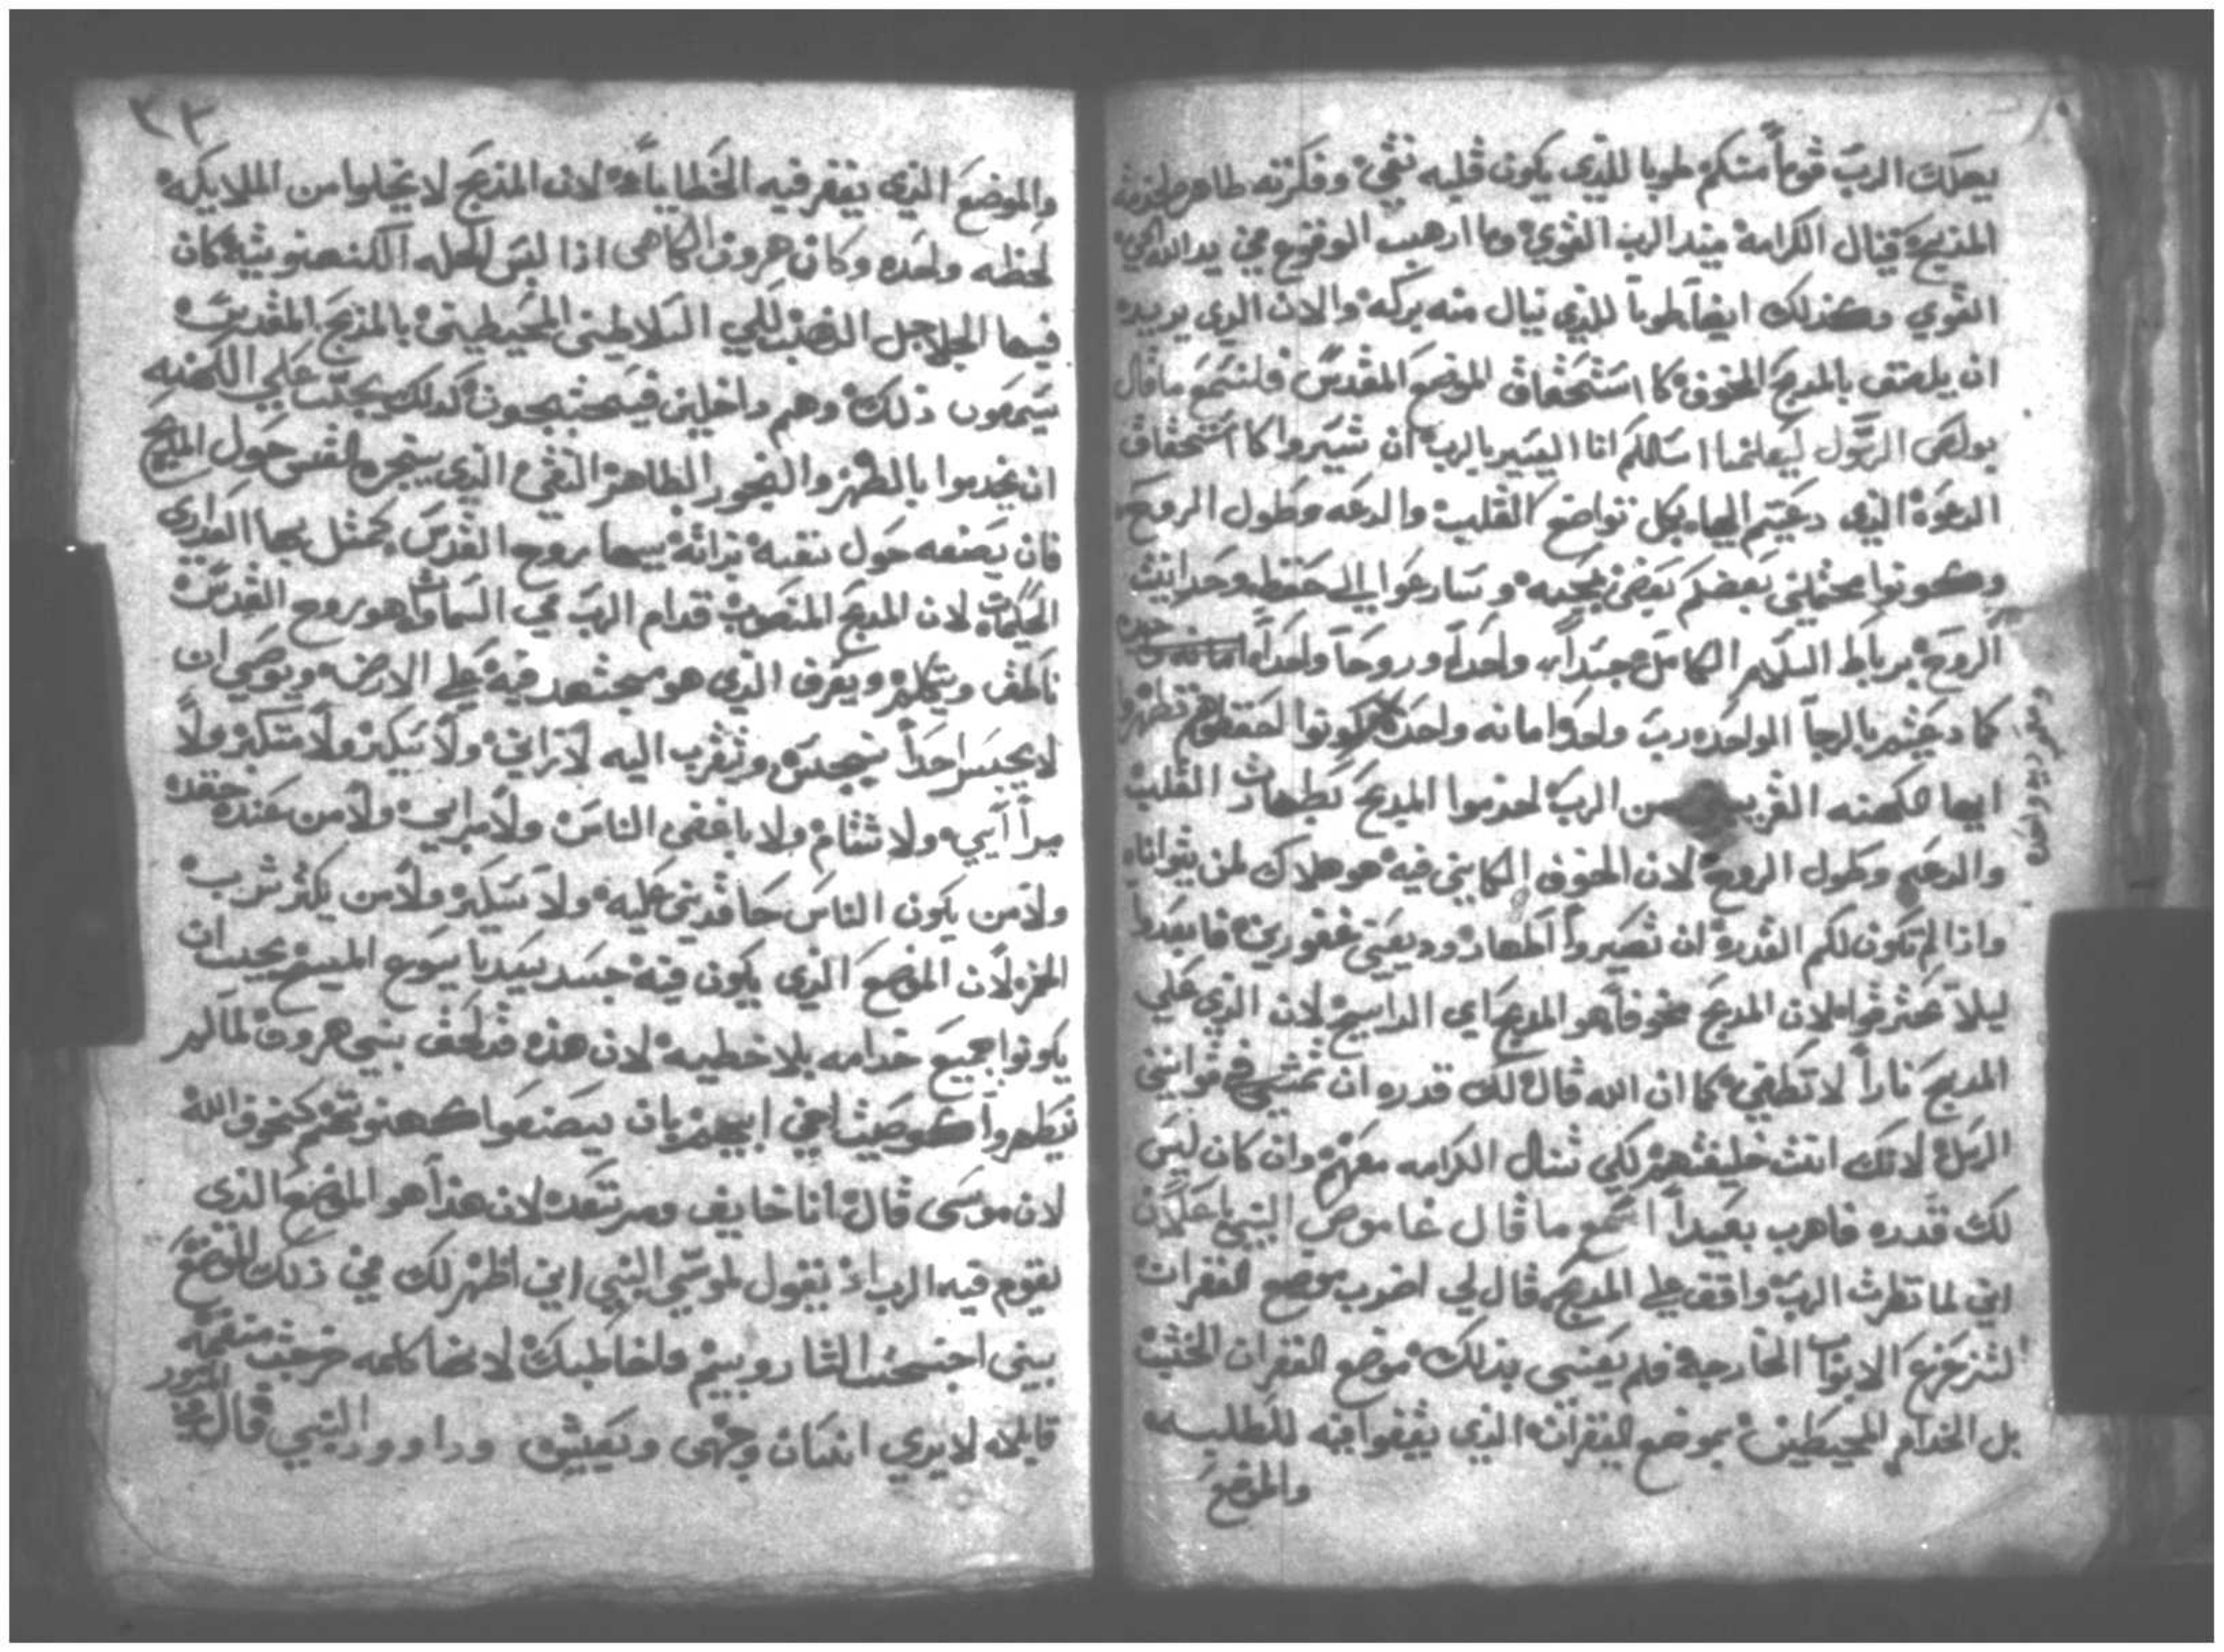 يهلك الرب قوماً منكم طوبا للذي يكون قلبه نقي وفكرته طاهر لخدمة
المذبح فينال الكرامة عند الرب القوي وما ارهب الوقوع في يد الله الحي
القوي وكذلك ايضاً طوباً للذي ينال منه بركه والان الذي يريد
ان يلصق بالمدبح المخوف كاستحقاق الموضع المقدس فلنسمع ما قال
بولص الرسول ليعلمنا اسالكم انا اليسير بالرب ان تسيروا كاستحقاق
الدعوة الذي دعيتم اليها بكل تواضع القلب والدعه وطول الروح
وكونوا محتملين بعضكم بعض بمحبه وسارعوا الى حفظ وحدانيت
الروح برباط السلام الكامل جسداً واحداً وروحاً واحداً
كما دعيتم بالرجا الواحده رب واحد وامانه واحده
ايها الكهنه القريبين من الرب اخدموا المدبح بطهارت القلب
والدعه وطول الروح لان الخوف الكاين فيه هو هلاك لمن يتوانا
واذا لم تكون لكم القدرة ان تصيروا اطهار ودعين غفورين فابعدوا
ليلا تحترقوا لان المدبح مخوفاً هو المدبح اي المدابح لان الذي على
المدبح ناراً لا تطفي كما ان الله قال لك قدره ان تمشي في قوانين
الرسل لانك انت خليفتهم لكي تنال الكرامه معهم وان كان ليس
لك قدره فاهرب بعيداً اسمع ما قال عاموص النبي باعلان
اني لما نظرت الرب واقف على المدبح قال لي اضرب موضع الغفران
لتزعزع الابواب الخارجة فلم يعني بذلك موضع الغفران الخشب
بل الخدام المحيطين بموضع الغفران الذي يقفوا فيه للطلبه
والموضع
ومعموديه واحده
٣٢
والموضع الذي يغفر فيه الخطايا لان المذبح لا يخلوا من الملايكه
لحظه واحده وكان هرون الكاهن اذا لبس الحله الكهنوتيه كان
فيها الجلاجل الذهب لكي السلاطين المحيطين بالمذبح المقدس
يسمعون ذلك وهم داخلين فيحتجبون كذلك يجب على الكهنه
ان يخدموا بالطهر والبخور الطاهر النقي الذي يبخره القس حول المدبح
فان يصنعه حول نفسه بذاته بيها روح القدس كمثل بها العذارى
الحكيمات لان المدبح المنصوب قدام الرب في السماء هو روح القدس
ناطق ويتكلم ويعرف الذي هو مجتهد فيه على الارض ويوصي ان
لا يجسر احداً نجس ويتقرب اليه لا زاني ولا سكير ولا متكبر ولا
مراآيي ولا شتام ولا باغض الناس ولا مرابي ولا من عنده حقد
ولا من يكون الناس حاقدين عليه ولا سكير ولا من يكثر شرب
الخمر لان الموضع الذي يكون فيه جسد سيدنا يسوع المسيح يجب ان
يكونوا جميع خدامه بلا خطيه لان هذه قد لحق بني هرون لما لم
يطهروا كوصيت ابيهم بان يصنعوا كهنوتهم كخوف الله
لان موسى قال انا خايف ومرتعد لان هذا هو الموضع الذي
يقوم فيه الرب اذ يقول لموسى النبي اني اظهر لك في ذلك الموضع
بيني اجنحت الشاروبيم واخاطبك لانها كلمه خرجت منفهمه
قايله لا يري انسان وجهي ويعيش وداوود النبي قال في
المزمور